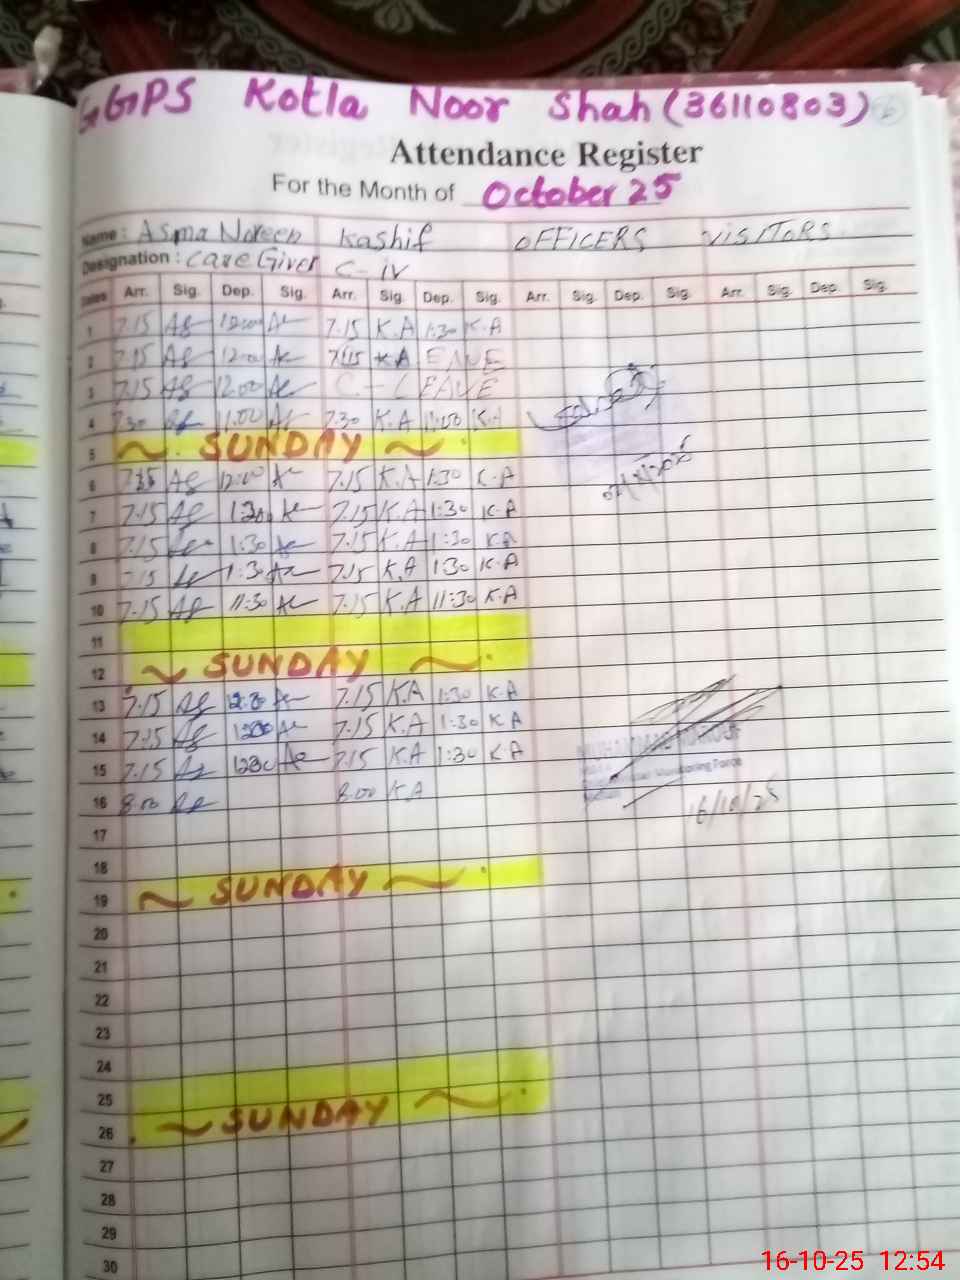 GGPS Kotla Noor Shah (36110803)
Attendance Register
For the Month of October 25
Name : Asma Noreen Kashif OFFICERS VISITORS
Designation : Care Giver C-iv
Dates Arr. Sig. Dep. Sig. Arr. Sig. Dep. Sig. Arr. Sig. Dep. Sig. Arr. Sig. Dep. Sig.
1 7.15 12:00 7.15 K.A 1:30 K.A
2 7.15 12:00 7.15 K.A EAVE
3 7.15 12.00 C-LEAVE
4 7.30 11.00 7.30 K.A 11:00 K.A
5 ~ SUNDAY ~
6 12:00 7.15 K.A 1:30 K.A
7 7.15 1:30 7.15 K.A 1:30 K.A
8 7.15 1:30 7.15 K.A 1:30 K.A
9 7.15 1:30 7.15 K.A 1:30 K.A
10 7.15 11:30 7.15 K.A 11:30 K.A
11
12 ~ SUNDAY ~
13 7.15 7.15 K.A 1:30 K.A
14 7.15 7.15 K.A 1:30 K.A
15 7.15 1230 7.15 K.A 1:30 K.A
16 8.00 8.00 K.A
Monitoring Force
16/10/25
17
18
19 ~ SUNDAY ~
20
21
22
23
24
25
26 ~ SUNDAY ~
27
28
29
30
16-10-25 12:54